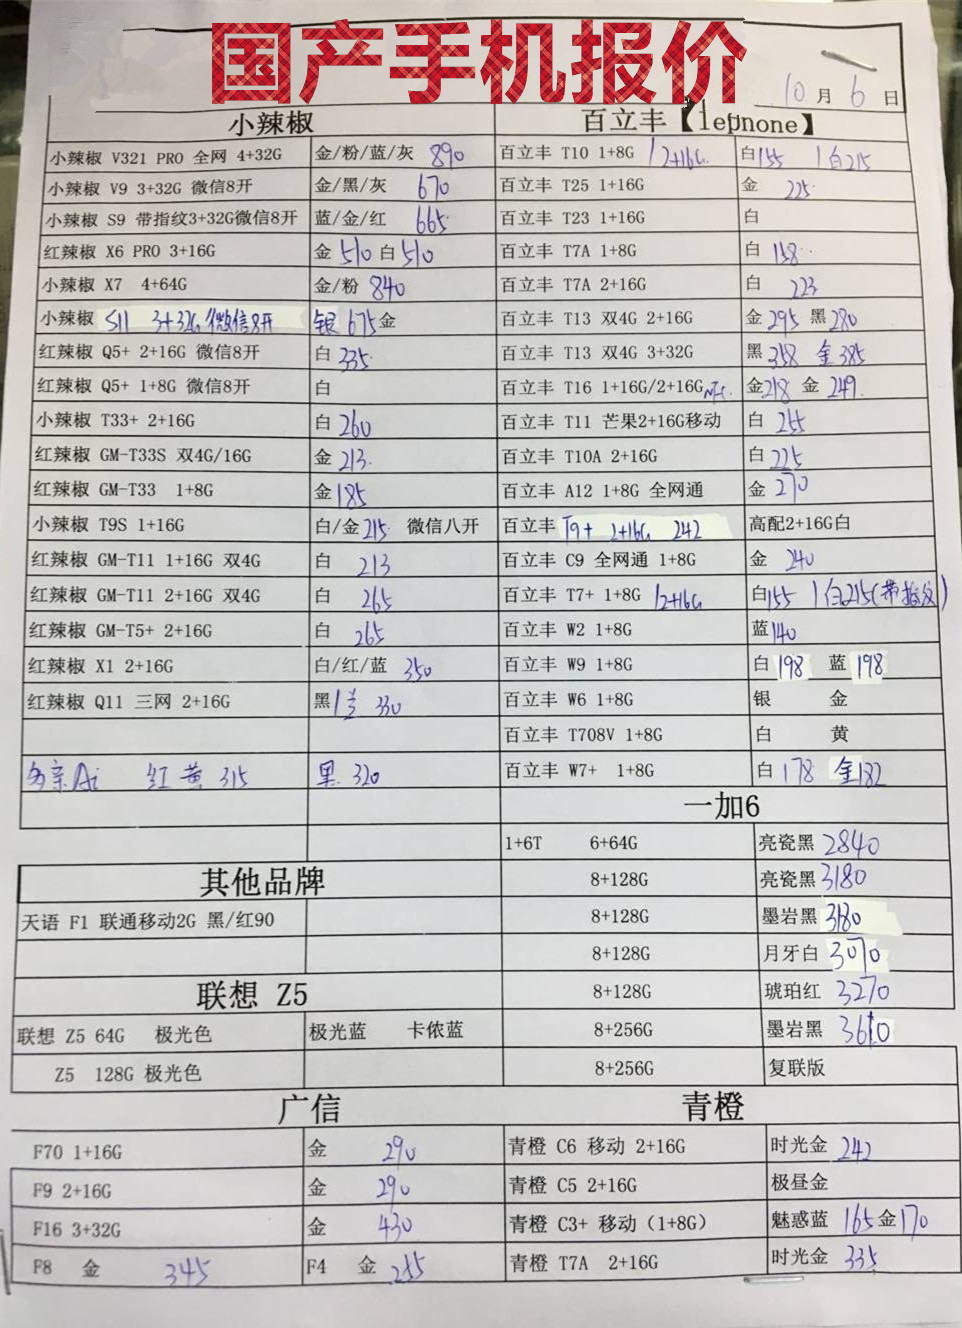 国产手机报价
10月6日
小辣椒
小辣椒 V321 PRO 全网 4+32G 金/粉/蓝/灰 890
小辣椒 V9 3+32G 微信8开 金/黑/灰 670
小辣椒 S9 带指纹3+32G微信8开 蓝/金/红 665
红辣椒 X6 PRO 3+16G 金 510 白 510
小辣椒 X7 4+64G 金/粉 840
小辣椒 S11 3+32G 微信8开 银 675 金
红辣椒 Q5+ 2+16G 微信8开 白 335
红辣椒 Q5+ 1+8G 微信8开 白
小辣椒 T33+ 2+16G 白 260
红辣椒 GM-T33S 双4G/16G 金 213
红辣椒 GM-T33 1+8G 金 185
小辣椒 T9S 1+16G 白/金 215 微信八开
红辣椒 GM-T11 1+16G 双4G 白 213
红辣椒 GM-T11 2+16G 双4G 白 265
红辣椒 GM-T5+ 2+16G 白 265
红辣椒 X1 2+16G 白/红/蓝 350
红辣椒 Q11 三网 2+16G 黑 330
多亲Ai 红 黄 315 黑 320
百立丰【lephone】
百立丰 T10 1+8G / 2+16G 白 155 / 白 215
百立丰 T25 1+16G 金 225
百立丰 T23 1+16G 白
百立丰 T7A 1+8G 白 158
百立丰 T7A 2+16G 白 223
百立丰 T13 双4G 2+16G 金 295 黑 280
百立丰 T13 双4G 3+32G 黑 358 金 385
百立丰 T16 1+16G/2+16G 金 218 金 249
百立丰 T11 芒果2+16G移动 白 255
百立丰 T10A 2+16G 白 225
百立丰 A12 1+8G 全网通 金 270
百立丰 T9+ 2+16G 242 高配2+16G白
百立丰 C9 全网通 1+8G 金 240
百立丰 T7+ 1+8G / 2+16G 白 155 / 白 215(带指纹)
百立丰 W2 1+8G 蓝 140
百立丰 W9 1+8G 白 198 蓝 198
百立丰 W6 1+8G 银 金
百立丰 T708V 1+8G 白 黄
百立丰 W7+ 1+8G 白 178 金 182
一加6
1+6T 6+64G 亮瓷黑 2840
8+128G 亮瓷黑 3180
8+128G 墨岩黑 3180
8+128G 月牙白 3070
8+128G 琥珀红 3270
8+256G 墨岩黑 3610
8+256G 复联版
其他品牌
天语 F1 联通移动2G 黑/红90
联想 Z5
联想 Z5 64G 极光色 极光蓝 卡侬蓝
Z5 128G 极光色
广信
F70 1+16G 金 290
F9 2+16G 金 290
F16 3+32G 金 430
F8 金 345 F4 金 255
青橙
青橙 C6 移动 2+16G 时光金 242
青橙 C5 2+16G 极昼金
青橙 C3+ 移动（1+8G） 魅惑蓝 165 金 170
青橙 T7A 2+16G 时光金 335